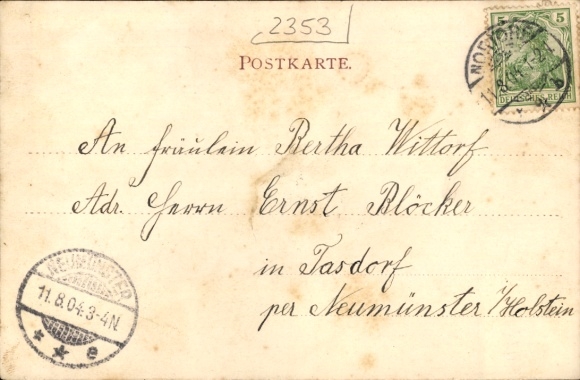 2353
POSTKARTE.
5 5
DEUTSCHES REICH
11.8.04
An Fräulein Bertha Wittorf
Adr. Herrn Ernst Blöcker
in Tasdorf
per Neumünster i/Holstein
NEUMÜNSTER
11.8.04.3-4N.
* * e